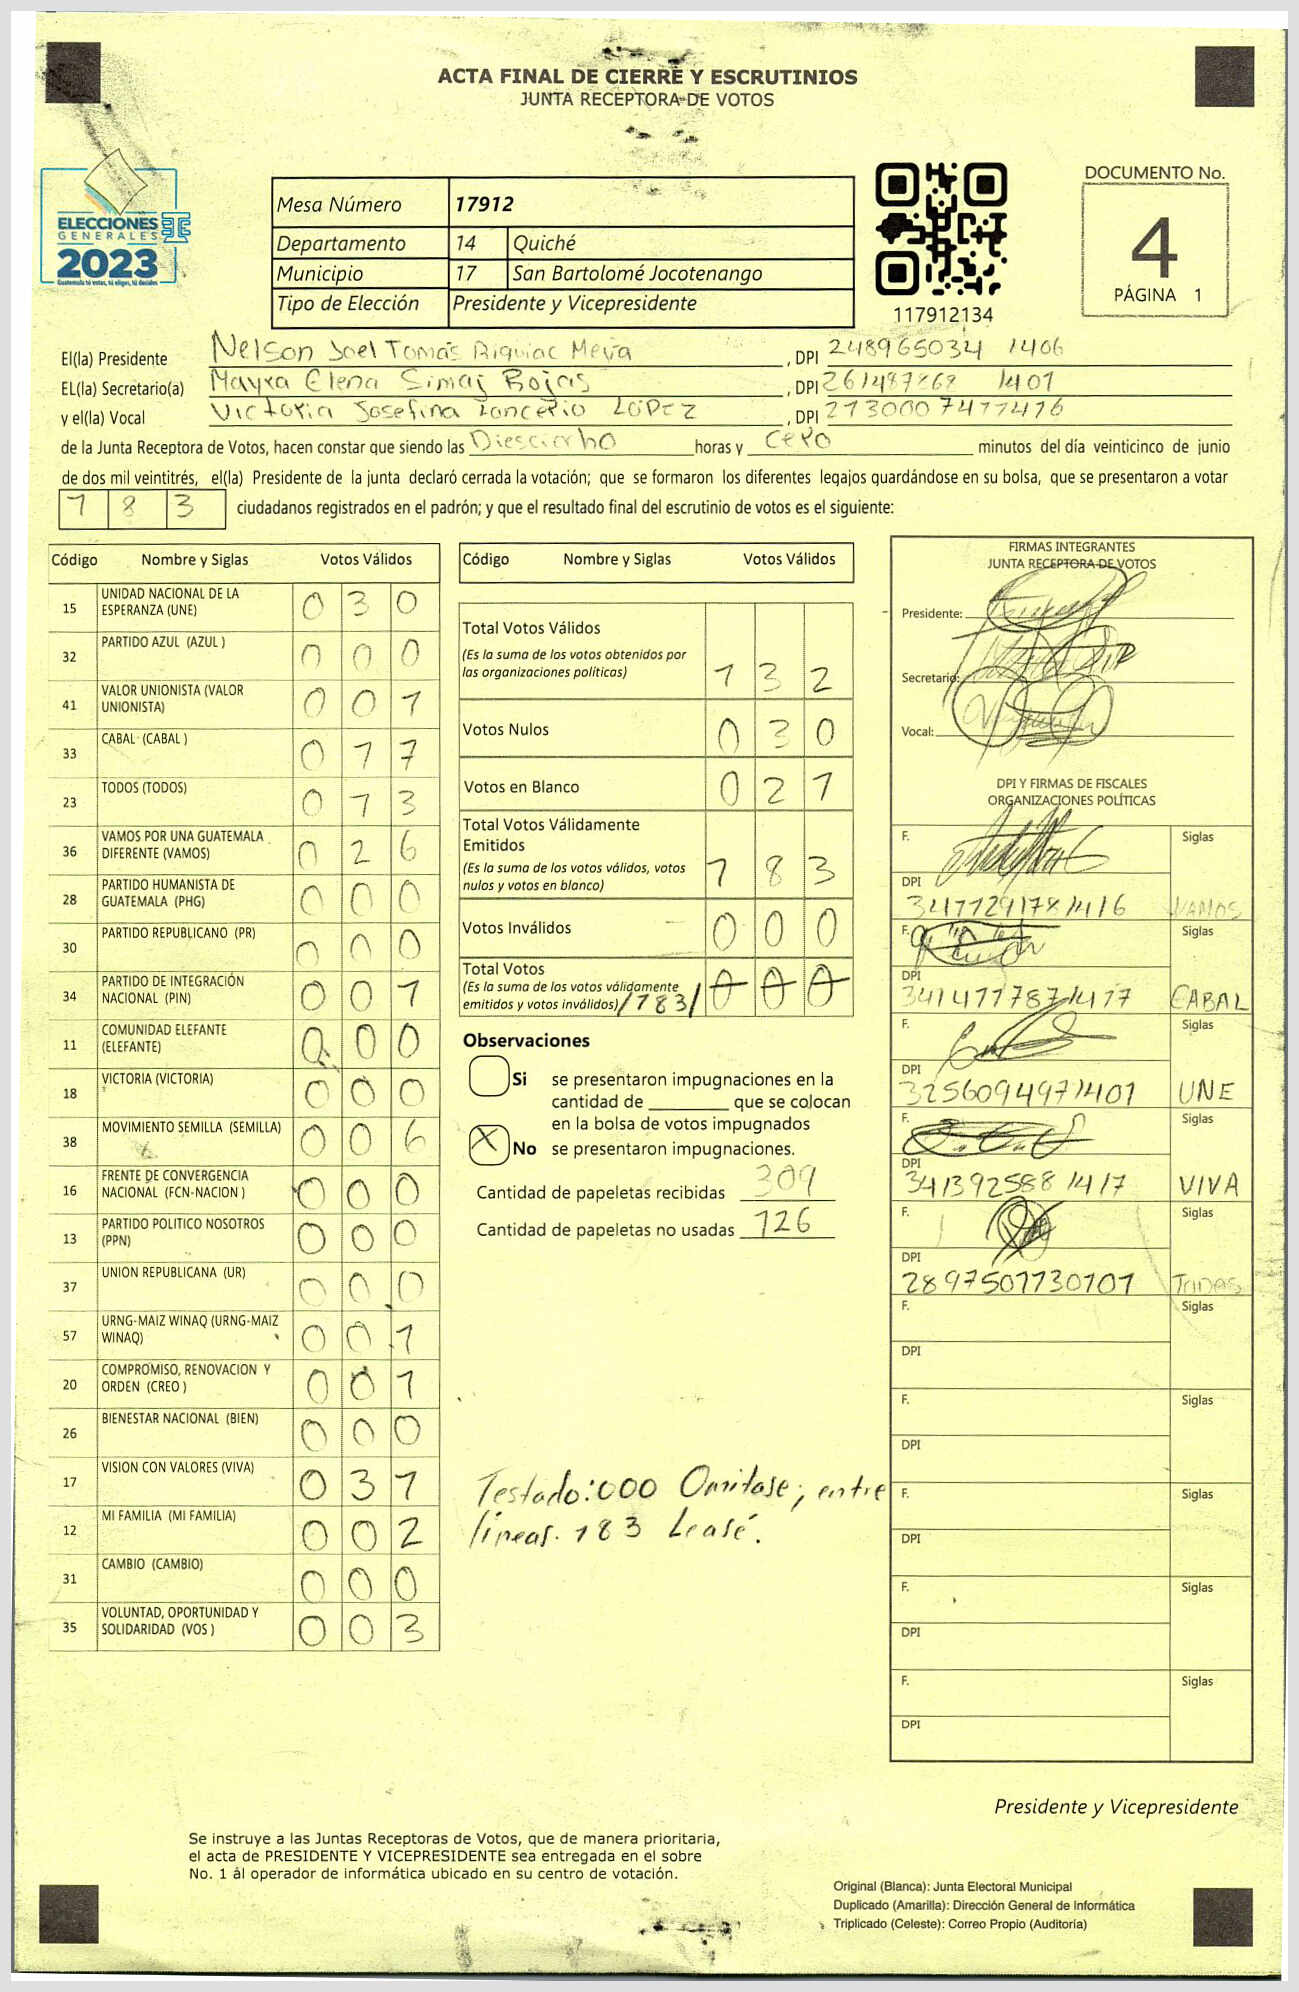 ACTA FINAL DE CIERRE Y ESCRUTINIOS
JUNTA RECEPTORA DE VOTOS
ELECCIONES
GENERALES
2023
Guatemala tú votas, tú eliges, tú decides
Mesa Número 17912
Departamento 14 Quiché
Municipio 17 San Bartolomé Jocotenango
Tipo de Elección Presidente y Vicepresidente
117912134
DOCUMENTO No.
4
PÁGINA 1
El(la) Presidente Nelson Joel Tomás Riquiac Mejía, DPI 248965034 1406
EL(la) Secretario(a) Mayra Elena Simaj Rojas, DPI 261487868 1401
y el(la) Vocal Victoria Josefina Loncerio López, DPI 2730007471416
de la Junta Receptora de Votos, hacen constar que siendo las Diesciocho horas y cero minutos del día veinticinco de junio
de dos mil veintitrés, el(la) Presidente de la junta declaró cerrada la votación; que se formaron los diferentes legajos guardándose en su bolsa, que se presentaron a votar
183 ciudadanos registrados en el padrón; y que el resultado final del escrutinio de votos es el siguiente:
Código Nombre y Siglas Votos Válidos
15 UNIDAD NACIONAL DE LA ESPERANZA (UNE) 030
32 PARTIDO AZUL (AZUL ) 000
41 VALOR UNIONISTA (VALOR UNIONISTA) 001
33 CABAL (CABAL ) 017
23 TODOS (TODOS) 013
36 VAMOS POR UNA GUATEMALA DIFERENTE (VAMOS) 026
28 PARTIDO HUMANISTA DE GUATEMALA (PHG) 000
30 PARTIDO REPUBLICANO (PR) 000
34 PARTIDO DE INTEGRACIÓN NACIONAL (PIN) 001
11 COMUNIDAD ELEFANTE (ELEFANTE) 000
18 VICTORIA (VICTORIA) 000
38 MOVIMIENTO SEMILLA (SEMILLA) 006
16 FRENTE DE CONVERGENCIA NACIONAL (FCN-NACION ) 000
13 PARTIDO POLITICO NOSOTROS (PPN) 000
37 UNION REPUBLICANA (UR) 000
57 URNG-MAIZ WINAQ (URNG-MAIZ WINAQ) 001
20 COMPROMISO, RENOVACION Y ORDEN (CREO ) 001
26 BIENESTAR NACIONAL (BIEN) 000
17 VISION CON VALORES (VIVA) 031
12 MI FAMILIA (MI FAMILIA) 002
31 CAMBIO (CAMBIO) 000
35 VOLUNTAD, OPORTUNIDAD Y SOLIDARIDAD (VOS ) 003
Código Nombre y Siglas Votos Válidos
Total Votos Válidos
(Es la suma de los votos obtenidos por
las organizaciones políticas) 132
Votos Nulos 030
Votos en Blanco 021
Total Votos Válidamente
Emitidos
(Es la suma de los votos válidos, votos
nulos y votos en blanco) 183
Votos Inválidos 000
Total Votos
(Es la suma de los votos válidamente
emitidos y votos inválidos) /183/ 000
Observaciones
Si se presentaron impugnaciones en la
cantidad de ________ que se colocan
en la bolsa de votos impugnados
X No se presentaron impugnaciones.
Cantidad de papeletas recibidas 309
Cantidad de papeletas no usadas 126
Testado: 000 Omitase; entre
líneas. 183 Leasé.
FIRMAS INTEGRANTES
JUNTA RECEPTORA DE VOTOS
Presidente:
Secretario:
Vocal:
DPI Y FIRMAS DE FISCALES
ORGANIZACIONES POLÍTICAS
F. Siglas
DPI 3417729178 1416 VAMOS
F. Siglas
DPI 3414777871417 CABAL
F. Siglas
DPI 3256094971401 UNE
F. Siglas
DPI 341392588 1417 VIVA
F. Siglas
DPI 2897501730101 Todos
F. Siglas
DPI
F. Siglas
DPI
F. Siglas
DPI
F. Siglas
DPI
F. Siglas
DPI
Presidente y Vicepresidente
Se instruye a las Juntas Receptoras de Votos, que de manera prioritaria,
el acta de PRESIDENTE Y VICEPRESIDENTE sea entregada en el sobre
No. 1 al operador de informática ubicado en su centro de votación.
Original (Blanca): Junta Electoral Municipal
Duplicado (Amarilla): Dirección General de Informática
Triplicado (Celeste): Correo Propio (Auditoría)